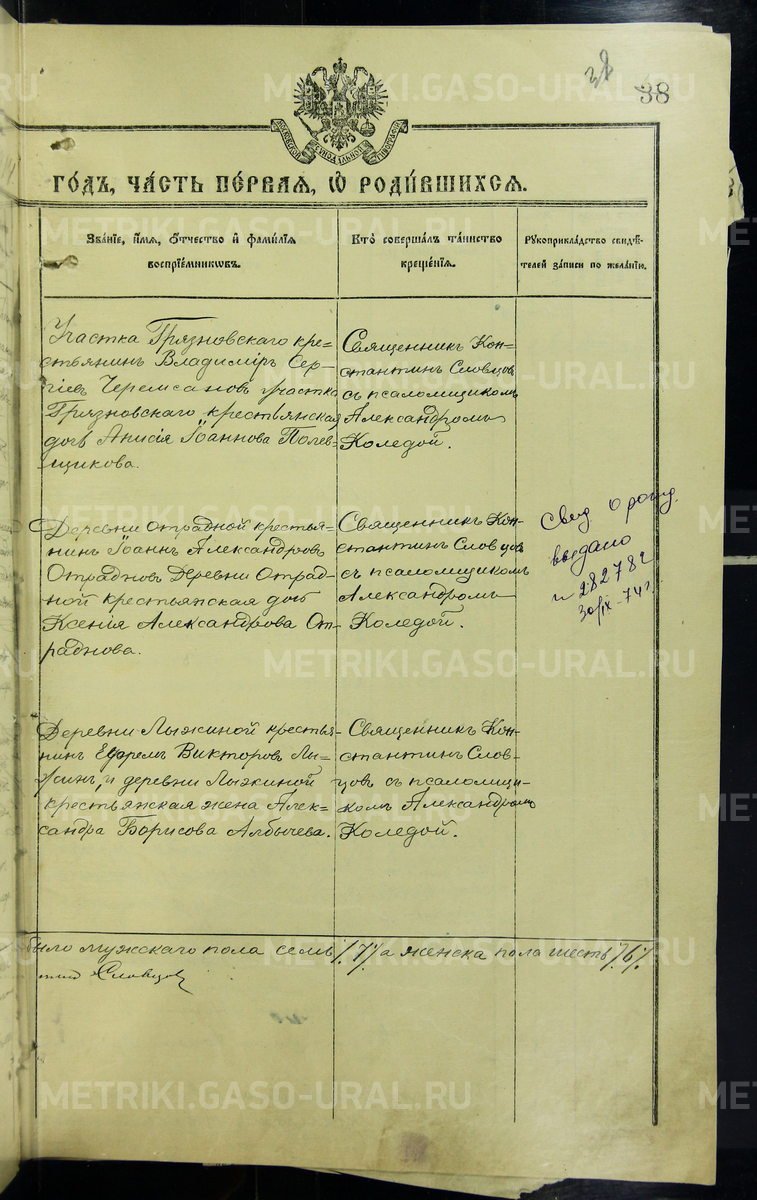 38
38
МОСКОВСКОЙ СѴНОДАЛЬНОЙ ТИПОГРАФІИ
ГО́ДЪ, ЧА́СТЬ ПЕ́РВАЯ, Ѡ҆ РОДИ́ВШИХСЯ.
Зва́нїе, и҆́мя, Ѻ҆́тчество и҆ фами́лїя воспрїе́мникѡвъ.
Кто̀ соверша́лъ та́инство креще́нїя.
Рꙋкоприкла́дство свидѣ́телей за́писи по жела́нїю.
Участка Грязновскаго кре=
стьянинъ Владиміръ Сер=
гіевъ Черемсановъ участка
Грязновскаго крестьянская
дочь Анисія Іоаннова Полев=
щикова.
Священникъ Кон=
стантинъ Словцовъ
съ псаломщикомъ
Александромъ
Коледой.
Деревни Отрадной крестья=
нинъ Іоаннъ Александровъ
Отрадновъ Деревни Отрад=
ной крестьянская дочь
Ксенія Александрова От=
раднова.
Священникъ Кон=
стантинъ Словцовъ
съ псаломщикомъ
Александромъ
Коледой.
Свид о рожд.
выдано
и 282782
30/IX-74 г.
Деревни Лыжиной крестья=
нинъ Ефремъ Викторовъ Лы=
жинъ, и деревни Лыжиной
крестьянская жена Алек=
сандра Борисова Албычева.
Священникъ Кон=
стантинъ Слов=
цовъ съ псаломщи=
комъ Александромъ
Коледой.
было мужскаго пола семь /7/ а женска пола шесть /6/
Словцов
METRIKI.GASO-URAL.RU